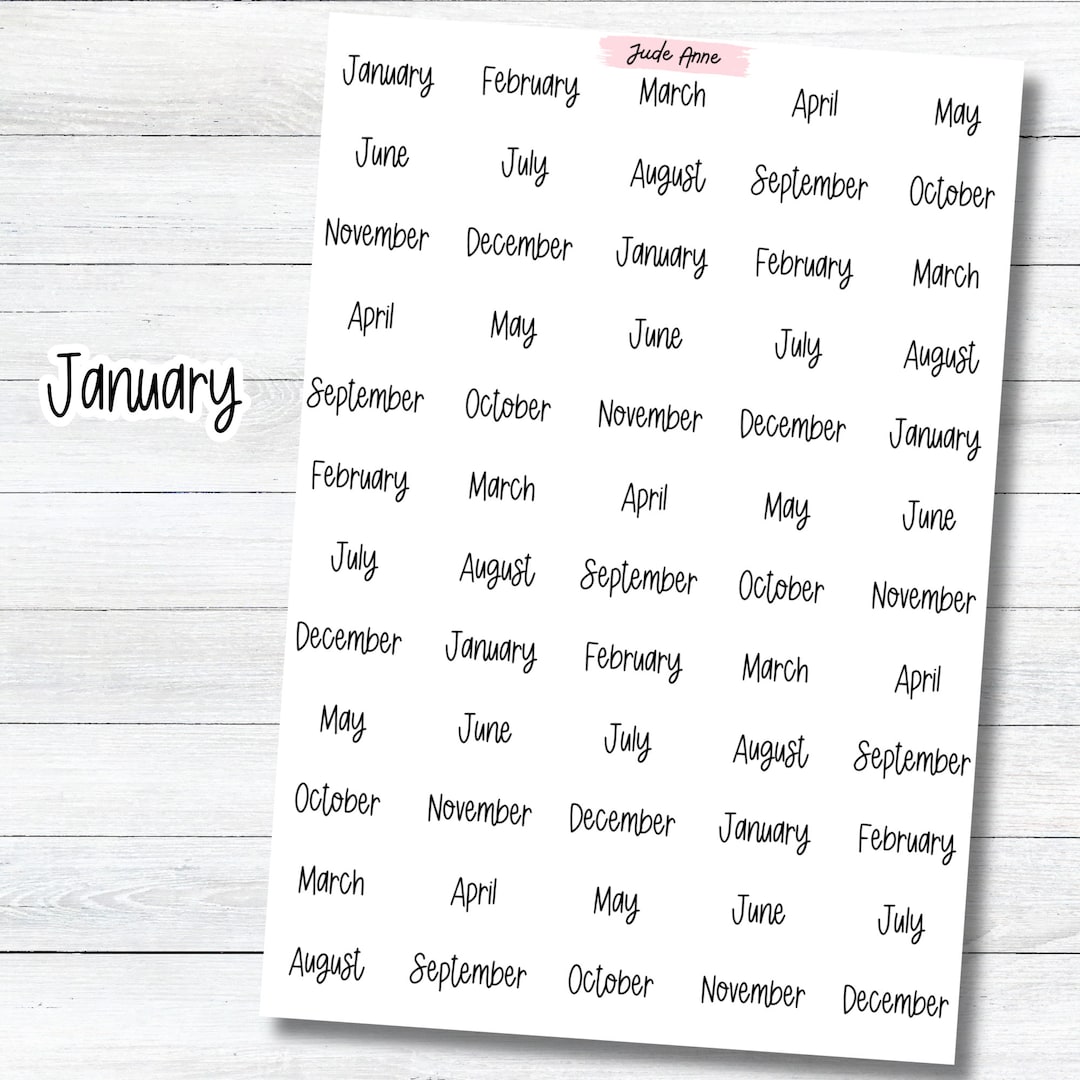 Jude Anne
January February March April May
June July August September October
November December January February March
April May June July August
January
September October November December January
February March April May June
July August September October November
December January February March April
May June July August September
October November December January February
March April May June July
August September October November December